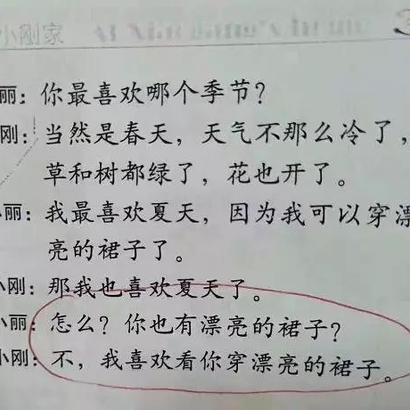 小刚家
丽：你最喜欢哪个季节？
刚：当然是春天，天气不那么冷了，
草和树都绿了，花也开了。
小丽：我最喜欢夏天，因为我可以穿漂
亮的裙子了。
小刚：那我也喜欢夏天了。
小丽：怎么？你也有漂亮的裙子？
小刚：不，我喜欢看你穿漂亮的裙子。